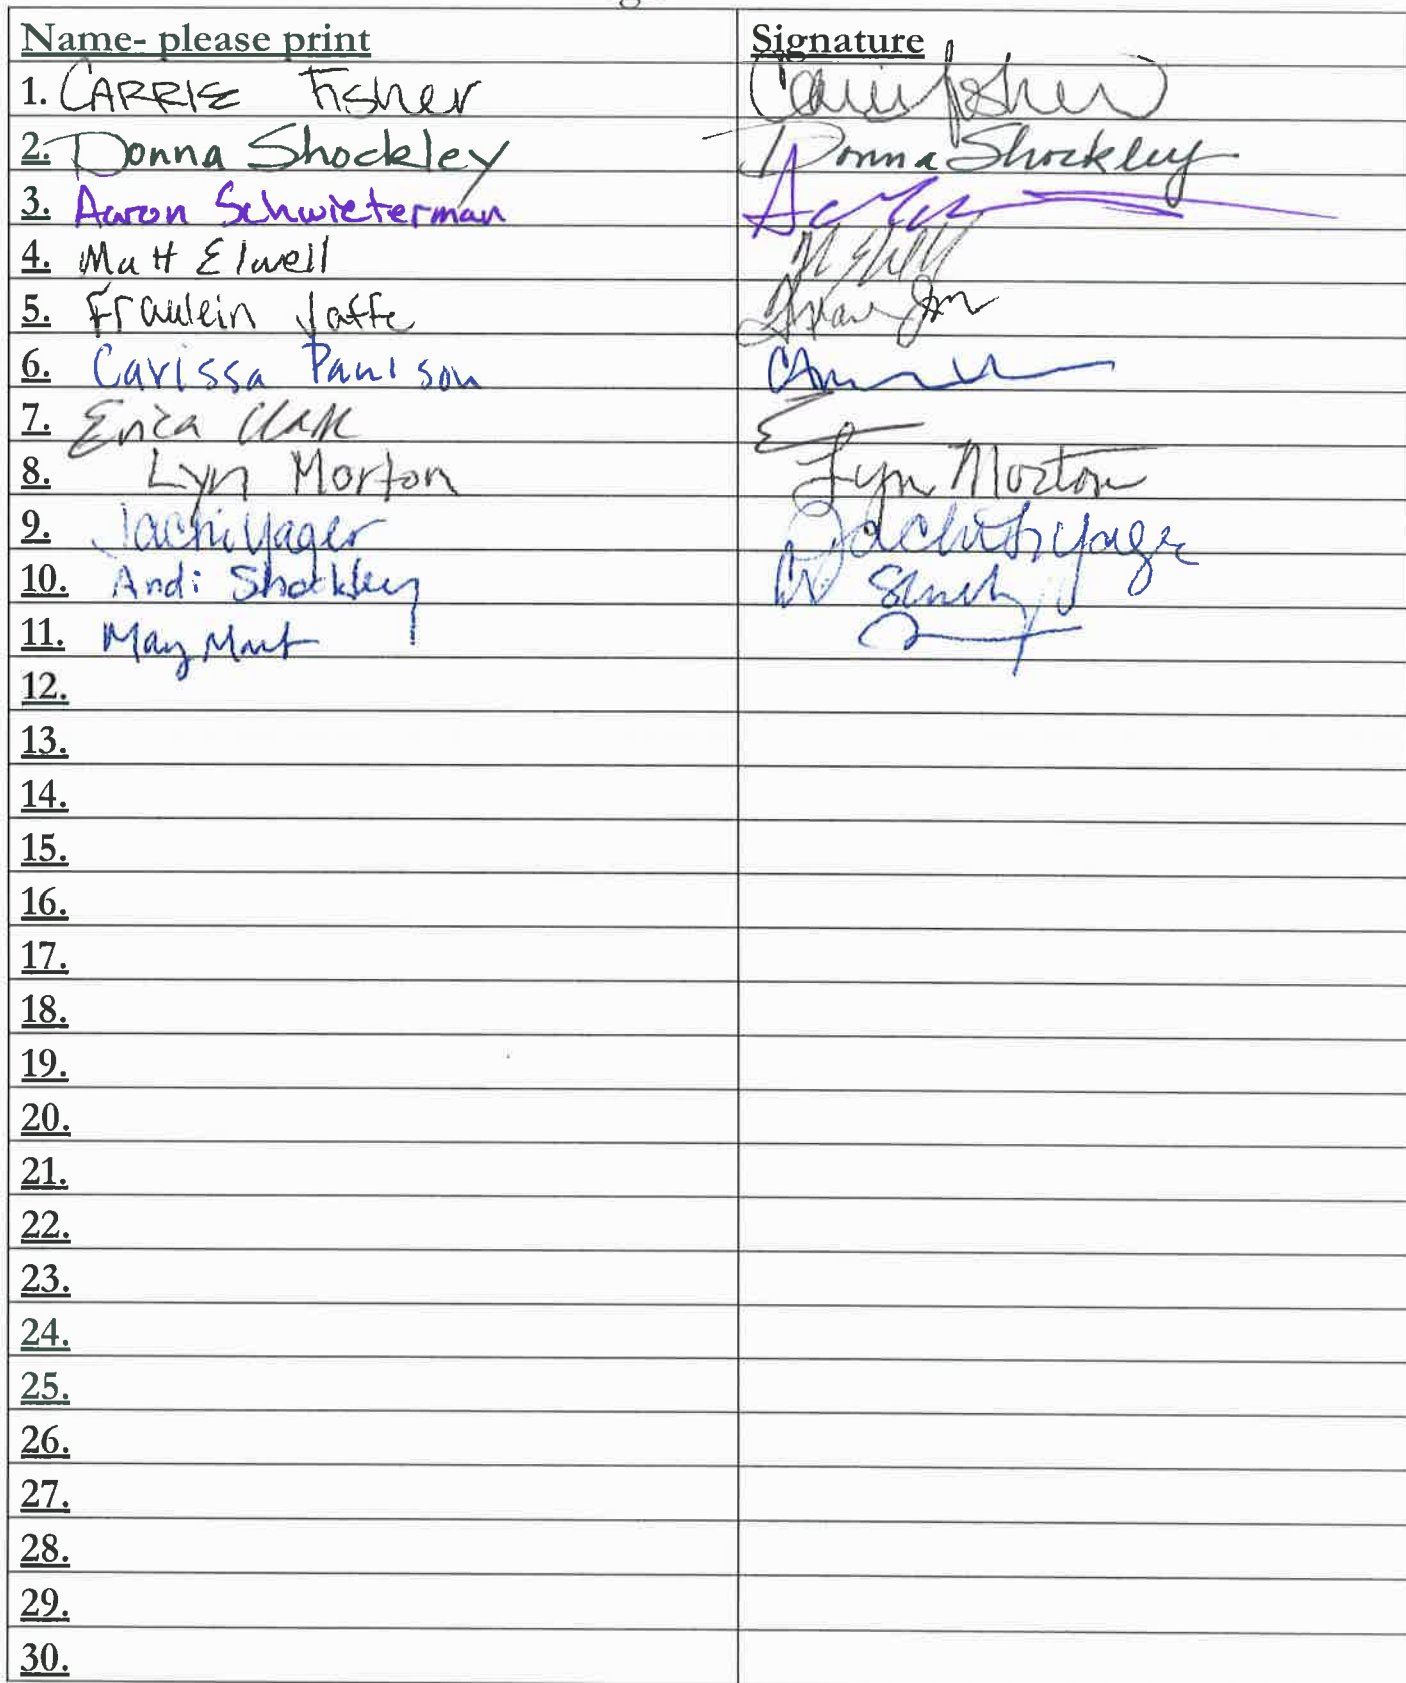 Name- please print Signature
1. CARRIE Fisher Carrie Fisher
2. Donna Shockley Donna Shockley
3. Aaron Schwieterman
4. Matt Elwell
5. Fraulein Jaffe
6. Carissa Paulson
7. Erica
8. Lyn Morton Lyn Morton
9. Jachi Yager Yager
10. Andi Shockley
11.
12.
13.
14.
15.
16.
17.
18.
19.
20.
21.
22.
23.
24.
25.
26.
27.
28.
29.
30.